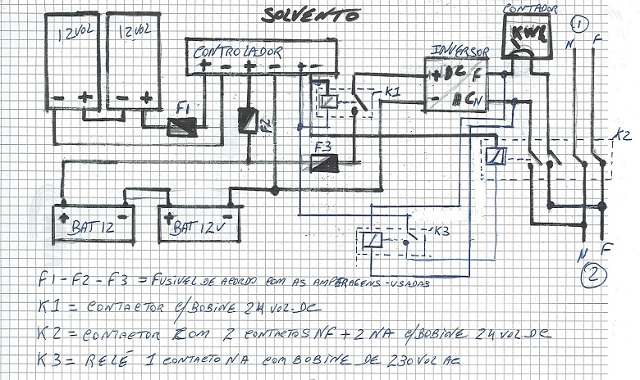 SOLVENTO
CONTADOR
KWH
1
N F
12VOL
12VOL
CONTROLADOR
+ - + - + -
INVERSOR
+ DC F
- AC N
- + - +
F1
F2
F3
K1
K2
K3
+ BAT 12 -
+ BAT 12V -
N F
2
F1-F2-F3 = FUSIVEL DE ACORDO COM AS AMPERAGENS-USADAS
K1 = CONTACTOR C/BOBINE 24 VOL-DC
K2 = CONTACTOR COM 2 CONTACTOS NF + 2 NA C/BOBINE 24 VOL DC
K3 = RELÉ 1 CONTACTO NA COM BOBINE DE 230 VOL AC